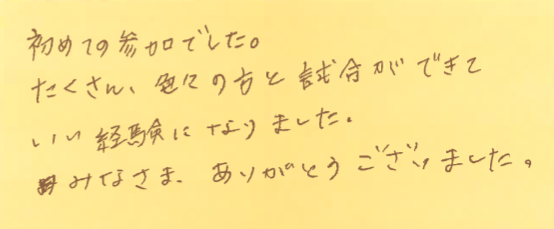 初めての参加でした。
たくさん、色々の方と試合ができて
いい経験になりました。
みなさま、ありがとうございました。